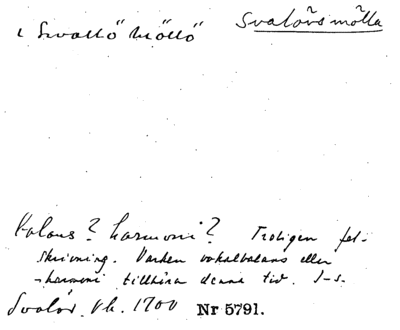 Svalövsmölla
i Svallö Möllö
Balans? harmoni? Troligen fel-
skrivning. Varken vokalbalans eller
-harmoni tillhöra denna tid. I-s.
Svalöv. Kb. 1700 Nr 5791.